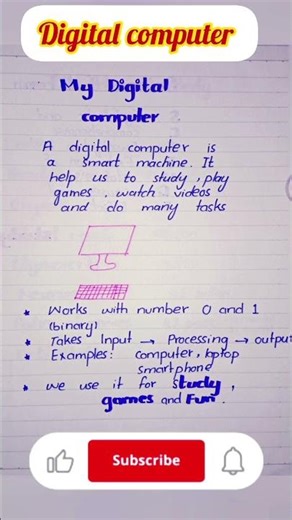 Digital computer
My Digital
computer
A digital computer is
a smart machine. It
help us to study, play
games. watch videos
and do many tasks
* Works with number 0 and 1
(binary)
* Takes Input → Processing → output
* Examples: computer, laptop
smartphone
* we use it for study,
games and Fun.
Subscribe